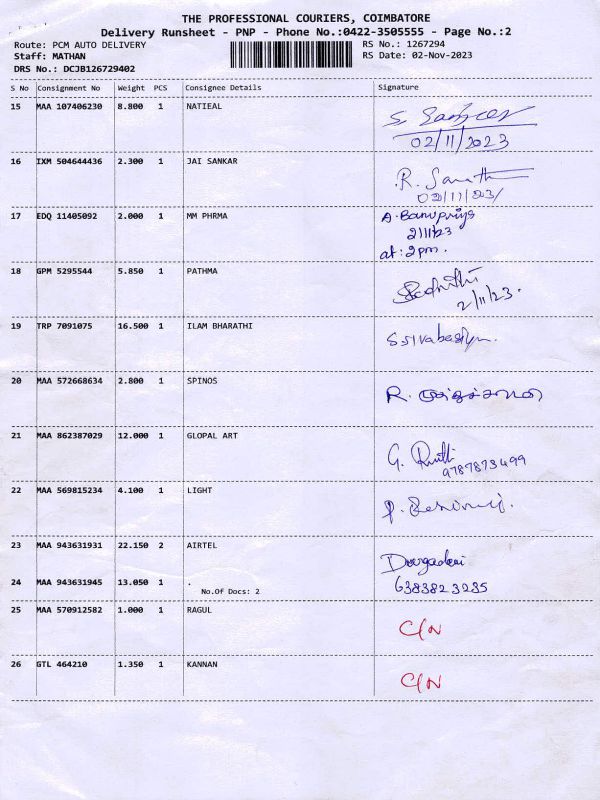 THE PROFESSIONAL COURIERS, COIMBATORE
Delivery Runsheet - PNP - Phone No.:0422-3505555 - Page No.:2
Route: PCM AUTO DELIVERY RS No.: 1267294
Staff: MATHAN RS Date: 02-Nov-2023
DRS No.: DCJB126729402
S No Consignment No Weight PCS Consignee Details Signature
15 MAA 107406230 8.800 1 NATIEAL
02/11/2023
16 IXM 504644436 2.300 1 JAI SANKAR
R.
02/11/23/
17 EDQ 11405092 2.000 1 MM PHRMA A. Banupriya
2/11/23
at: 2pm.
18 GPM 5295544 5.850 1 PATHMA
2/11/23.
19 TRP 7091075 16.500 1 ILAM BHARATHI
20 MAA 572668634 2.800 1 SPINOS
R.
21 MAA 862387029 12.000 1 GLOPAL ART
G.
9787873499
22 MAA 569815234 4.100 1 LIGHT
23 MAA 943631931 22.150 2 AIRTEL
Durgadevi
24 MAA 943631945 13.050 1 . 6383823235
No.Of Docs: 2
25 MAA 570912582 1.000 1 RAGUL
C/N
26 GTL 464210 1.350 1 KANNAN
C/N